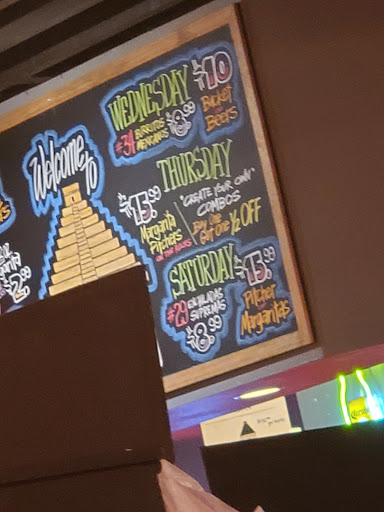 Welcome
to
WEDNESDAY
#34 BURRITOS
MEXICANOS
$8.99
$10
BUCKET
BEERS
THURSDAY
$13.99
Margarita
Pitchers
ON THE ROCKS
"CREATE YOUR OWN"
COMBOS
Buy One
Get One ½ OFF
SATURDAY
#29 ENCHILADAS
SUPREMAS
$8.99
$13.99
Pitcher
Margaritas
$2.99